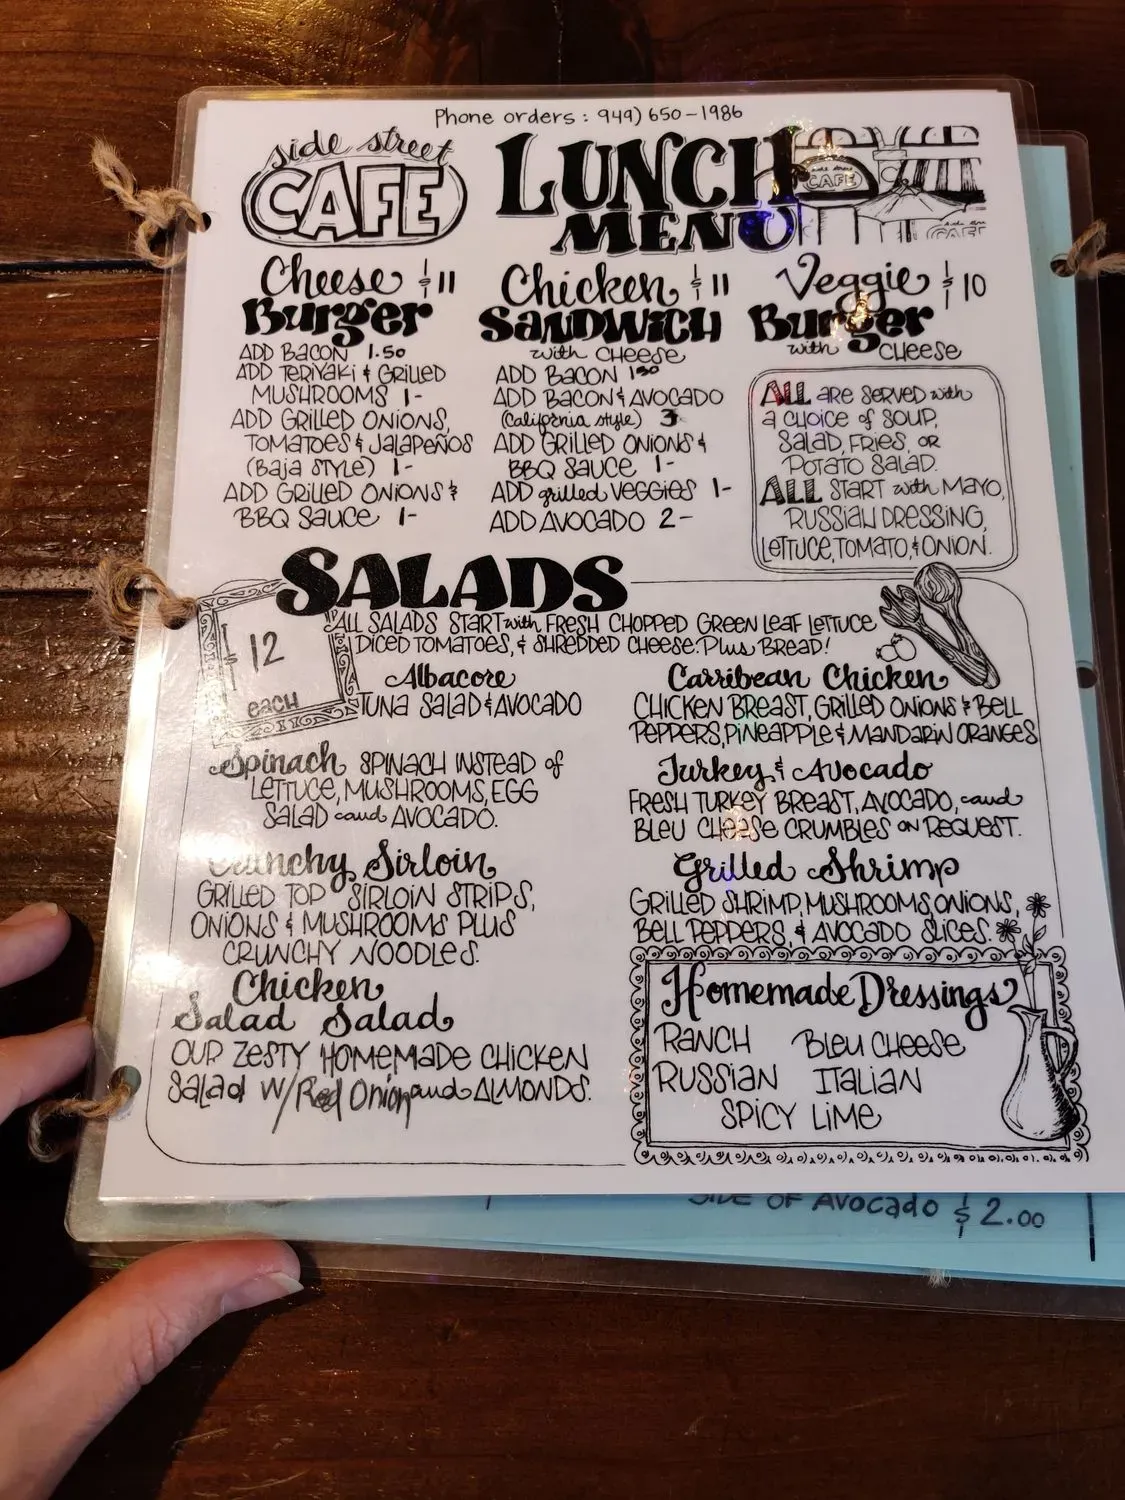 Phone orders: 949) 650-1986
side street
CAFE
LUNCH
MENU
CAFE
CAFE
Cheese $11
Burger
ADD BACON 1.50
ADD TERIYAKI & GRILLED
MUSHROOMS 1-
ADD GRILLED ONIONS,
TOMATOES & JALAPEÑOS
(BAJA STYLE) 1-
ADD GRILLED ONIONS &
BBQ SAUCE 1-
Chicken $11
SANDWICH
with CHEESE
ADD BACON 1.50
ADD BACON & AVOCADO
(California style) 3-
ADD GRILLED ONIONS &
BBQ SAUCE 1-
ADD grilled VEGGIES 1-
ADD AVOCADO 2-
Veggie $10
Burger
with CHEESE
ALL ARE SERVED with
a CHOICE of SOUP,
SALAD, FRIES, OR
POTATO SALAD.
ALL START with MAYO,
RUSSIAN DRESSING,
LETTUCE, TOMATO, & ONION.
SALADS
$12
each
ALL SALADS START with FRESH CHOPPED GREEN LEAF LETTUCE
DICED TOMATOES, & SHREDDED CHEESE. Plus BREAD!
Albacore
TUNA SALAD & AVOCADO
Spinach SPINACH INSTEAD of
LETTUCE, MUSHROOMS, EGG
SALAD and AVOCADO.
Crunchy Sirloin
GRILLED TOP SIRLOIN STRIPS,
ONIONS & MUSHROOMS PLUS
CRUNCHY NOODLES.
Chicken
Salad Salad
OUR ZESTY HOMEMADE CHICKEN
SALAD W/ Red Onion and ALMONDS.
Carribean Chicken
CHICKEN BREAST, GRILLED ONIONS & BELL
PEPPERS, PINEAPPLE & MANDARIN ORANGES
Turkey & Avocado
FRESH TURKEY BREAST, AVOCADO, and
BLEU CHEESE CRUMBLES ON REQUEST.
Grilled Shrimp
GRILLED SHRIMP, MUSHROOMS, ONIONS,
BELL PEPPERS, & AVOCADO SLICES.
Homemade Dressings
RANCH BLEU CHEESE
RUSSIAN ITALIAN
SPICY LIME
SIDE OF AVOCADO $2.00